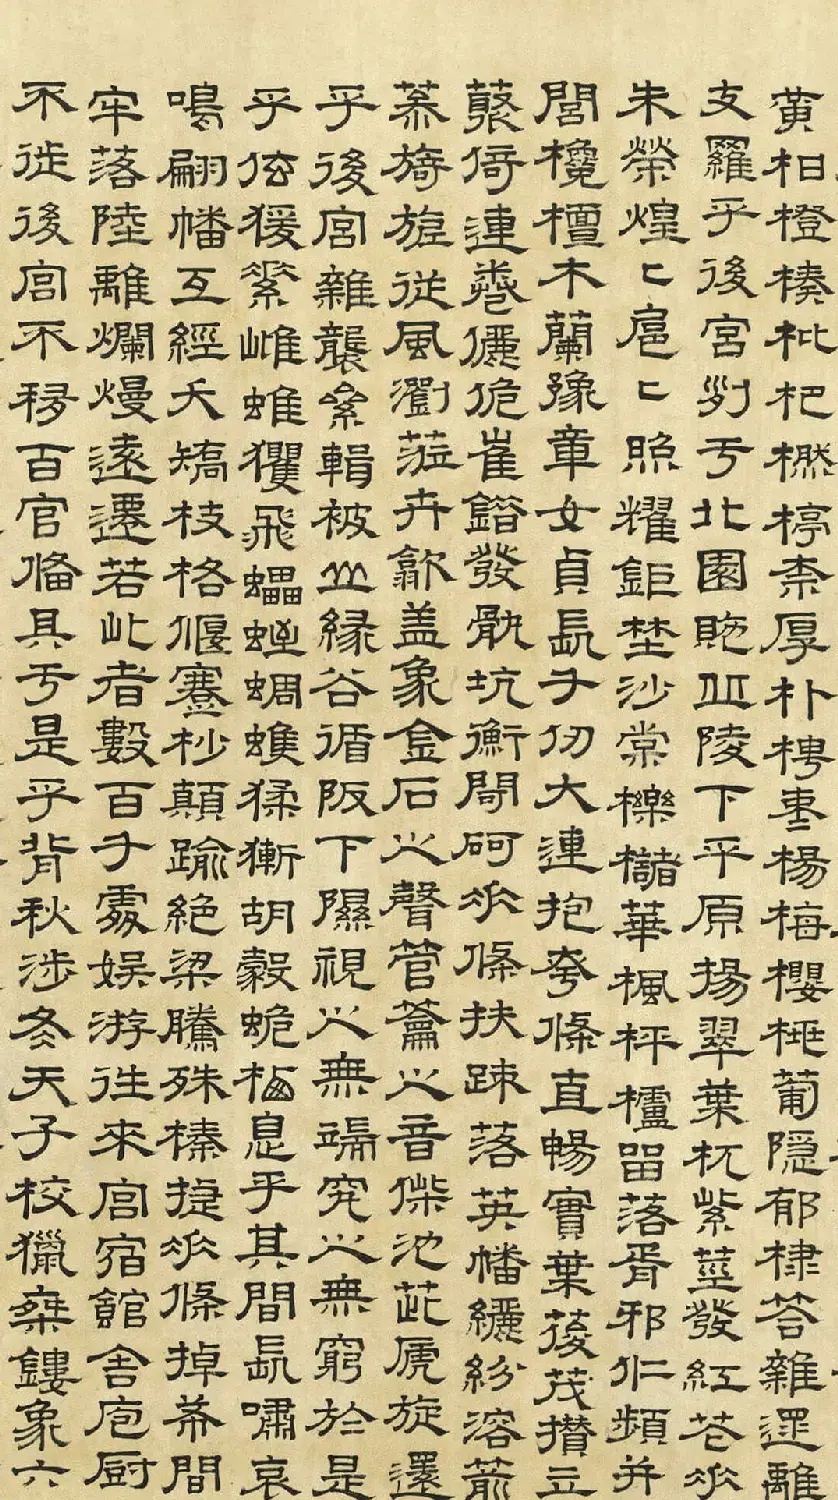 黄柑橙楱枇杷橪楟柰厚朴梬棗楊梅櫻桃葡隱郁棣荅雜遝離
支羅乎後宮列于北園貤丘陵下平原揚翠葉杌紫莖發紅花垂
朱榮煌〻扈〻照耀鉅埜沙棠櫟櫧華楓枰櫨留落胥邪仁頻并
閭欃檀木蘭豫章女貞長千仞大連抱夸條直暢實葉葰茂攢立
藂倚連卷儷佹崔錯發骫坑衡閜砢垂條扶疎落英幡纚紛溶萷
蔘旖旎從風瀏莅卉歙盖象金石之聲管籥之音偨池茈虒旋還
乎後宮雜襲絫輯被山緣谷循阪下隰視之無端究之無窮於是
乎玄猨素雌蜼玃飛蠝蛭蜩蠼猱獑胡豰蛫栖息乎其間長嘯哀
鳴翩幡互經夭矯枝格偃蹇杪顛踰絶梁騰殊榛捷垂條掉希間
牢落陸離爛熳遠遷若此者數百千處娱游往來宮宿館舍庖厨
不徙後宮不移百官備具于是乎背秋涉冬天子校獵乘鏤象六